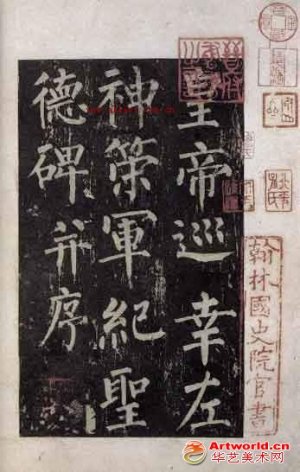 皇帝巡幸左
神策軍紀聖
德碑并序
翰林國史院官書
Artworld.cn
华艺美术网